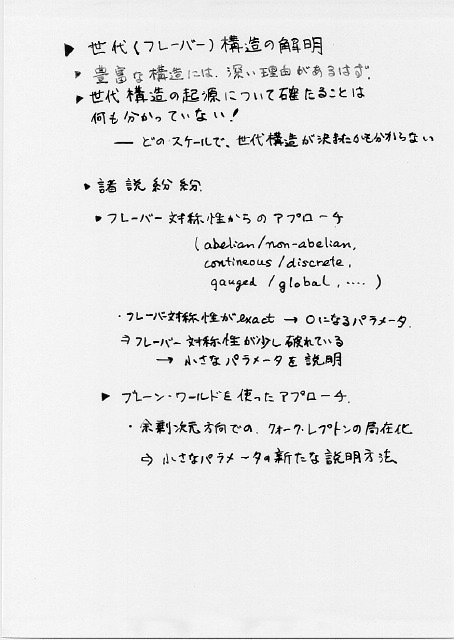 ▶ 世代(フレーバー)構造の解明
▶ 豊富な構造には、深い理由があるはず.
▶ 世代構造の起源について確たることは
何も分かっていない!
— どのスケールで、世代構造が決まったかも分からない
▶ 諸説紛紛
▶ フレーバー対称性からのアプローチ
(abelian/non-abelian,
contineous/discrete,
gauged/global, ....)
・フレーバー対称性がexact → 0になるパラメータ
⇒ フレーバー対称性が少し破れている
→ 小さなパラメータを説明
▶ ブレーン・ワールドを使ったアプローチ.
・余剰次元方向での、クォーク・レプトンの局在化
⇒ 小さなパラメータの新たな説明方法